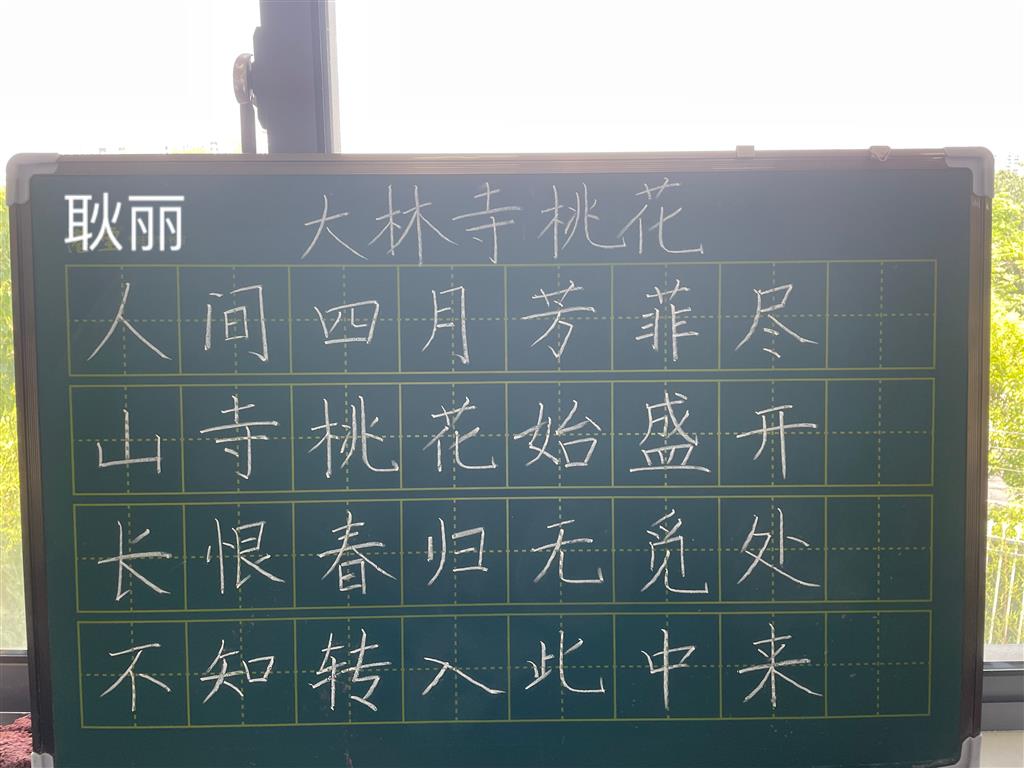 耿丽
大林寺桃花
人间四月芳菲尽
山寺桃花始盛开
长恨春归无觅处
不知转入此中来